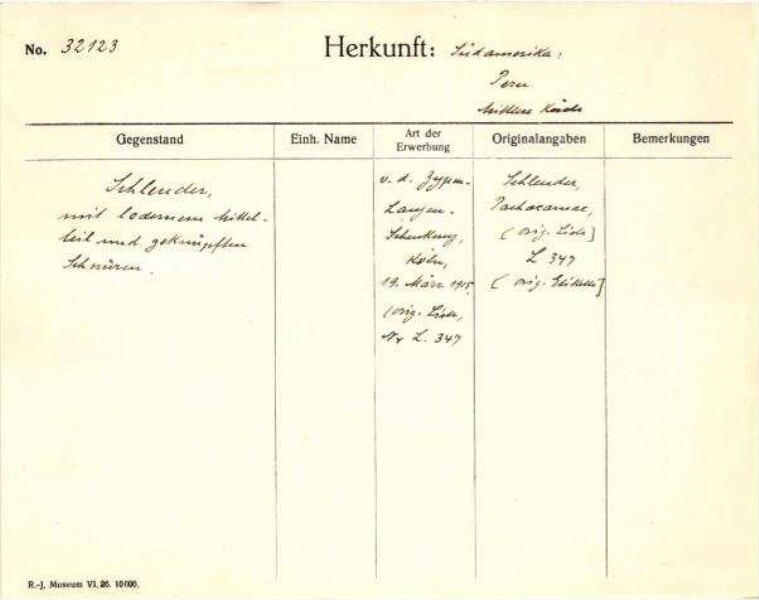 No. 32123
Herkunft: Südamerika:
Peru
Mittlere Küste
Gegenstand
Einh. Name
Art der
Erwerbung
Originalangaben
Bemerkungen
Schleuder,
mit ledernem Mittel-
teil und geknüpften
Schnüren.
v. d. Zypen-
Langen-
Schenkung,
Köln,
19. März 1915
(orig. Liste,
Nr L. 347
Schleuder,
Pachacamac,
(orig. Liste]
L 347
[orig. Etikette]
R.-J. Museum VI. 26. 10 000.